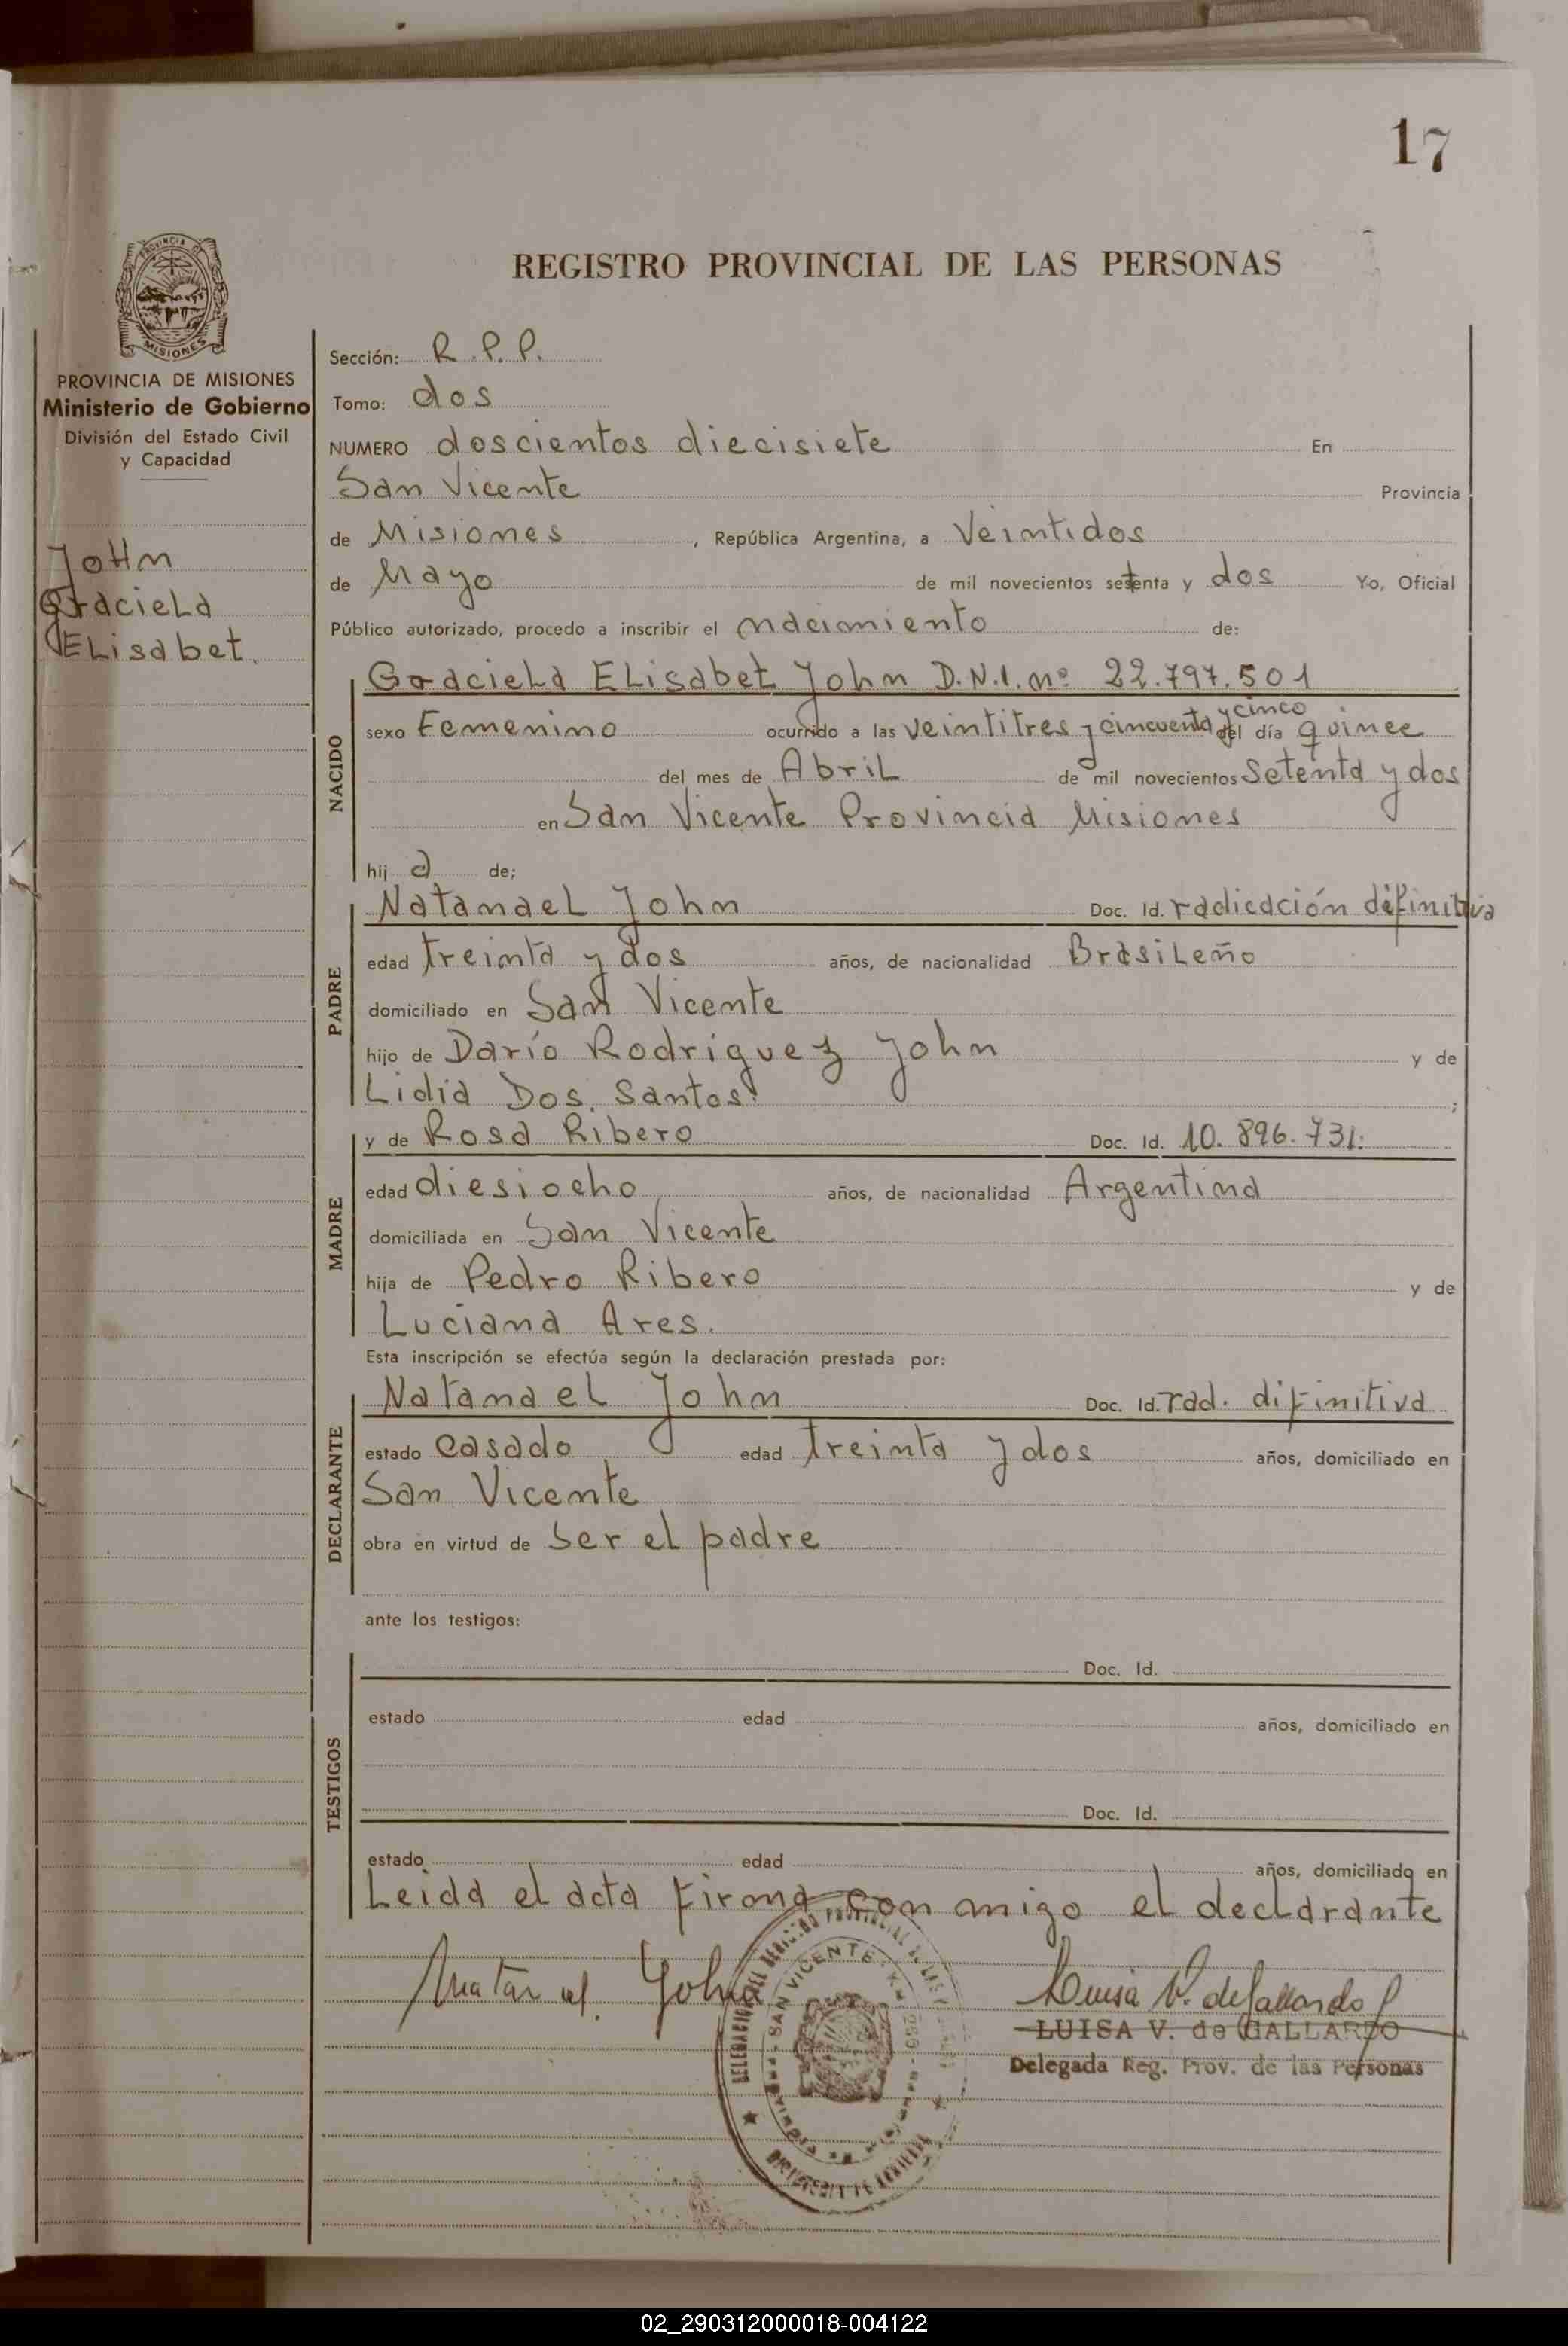 17
REGISTRO PROVINCIAL DE LAS PERSONAS
PROVINCIA DE MISIONES
Ministerio de Gobierno
División del Estado Civil
y Capacidad
JoHn
GracieLa
ELisabet.
Sección: R.P.P.
Tomo: dos
NUMERO doscientos diecisiete En
San Vicente Provincia
de Misiones, República Argentina, a Veintidos
de Mayo de mil novecientos setenta y dos Yo, Oficial
Público autorizado, procedo a inscribir el nacimiento de:
NACIDO
GracieLa ELisabet John D.N.I. nº 22.797.501
y cinco
sexo Femenino ocurrido a las veintitres y cincuenta del día quince
del mes de AbriL de mil novecientos Setenta y dos
en San Vicente Provincia Misiones
hij a de;
PADRE
NatanaeL John Doc. Id. radicación difinitiva
edad treinta y dos años, de nacionalidad BrasiLeño
domiciliado en San Vicente
hijo de Darío Rodriguez John y de
Lidia Dos. Santos. ;
MADRE
y de Rosa Ribero Doc. Id. 10.896.731.
edad diesiocho años, de nacionalidad Argentina
domiciliada en San Vicente
hija de Pedro Ribero y de
Luciana Ares.
Esta inscripción se efectúa según la declaración prestada por:
DECLARANTE
Natanael John Doc. Id. rad. difinitiva
estado casado edad treinta y dos años, domiciliado en
San Vicente
obra en virtud de Ser el padre
ante los testigos:
TESTIGOS
Doc. Id.
estado edad años, domiciliado en
Doc. Id.
estado edad años, domiciliado en
Leida el acta firma con migo el declarante
Natanael. John
Luisa V. de Gallardo
LUISA V. de GALLARDO
Delegada Reg. Prov. de las Personas
SAN VICENTE
02_290312000018-004122